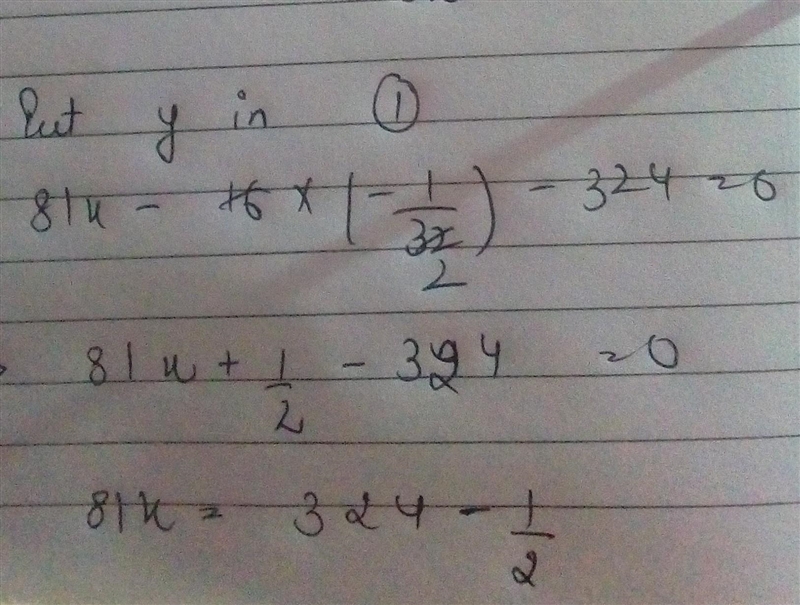 Put y in ①
81x - 16 × (-1/32) - 324 = 0
2
81x + 1/2 - 324 = 0
81x = 324 - 1/2